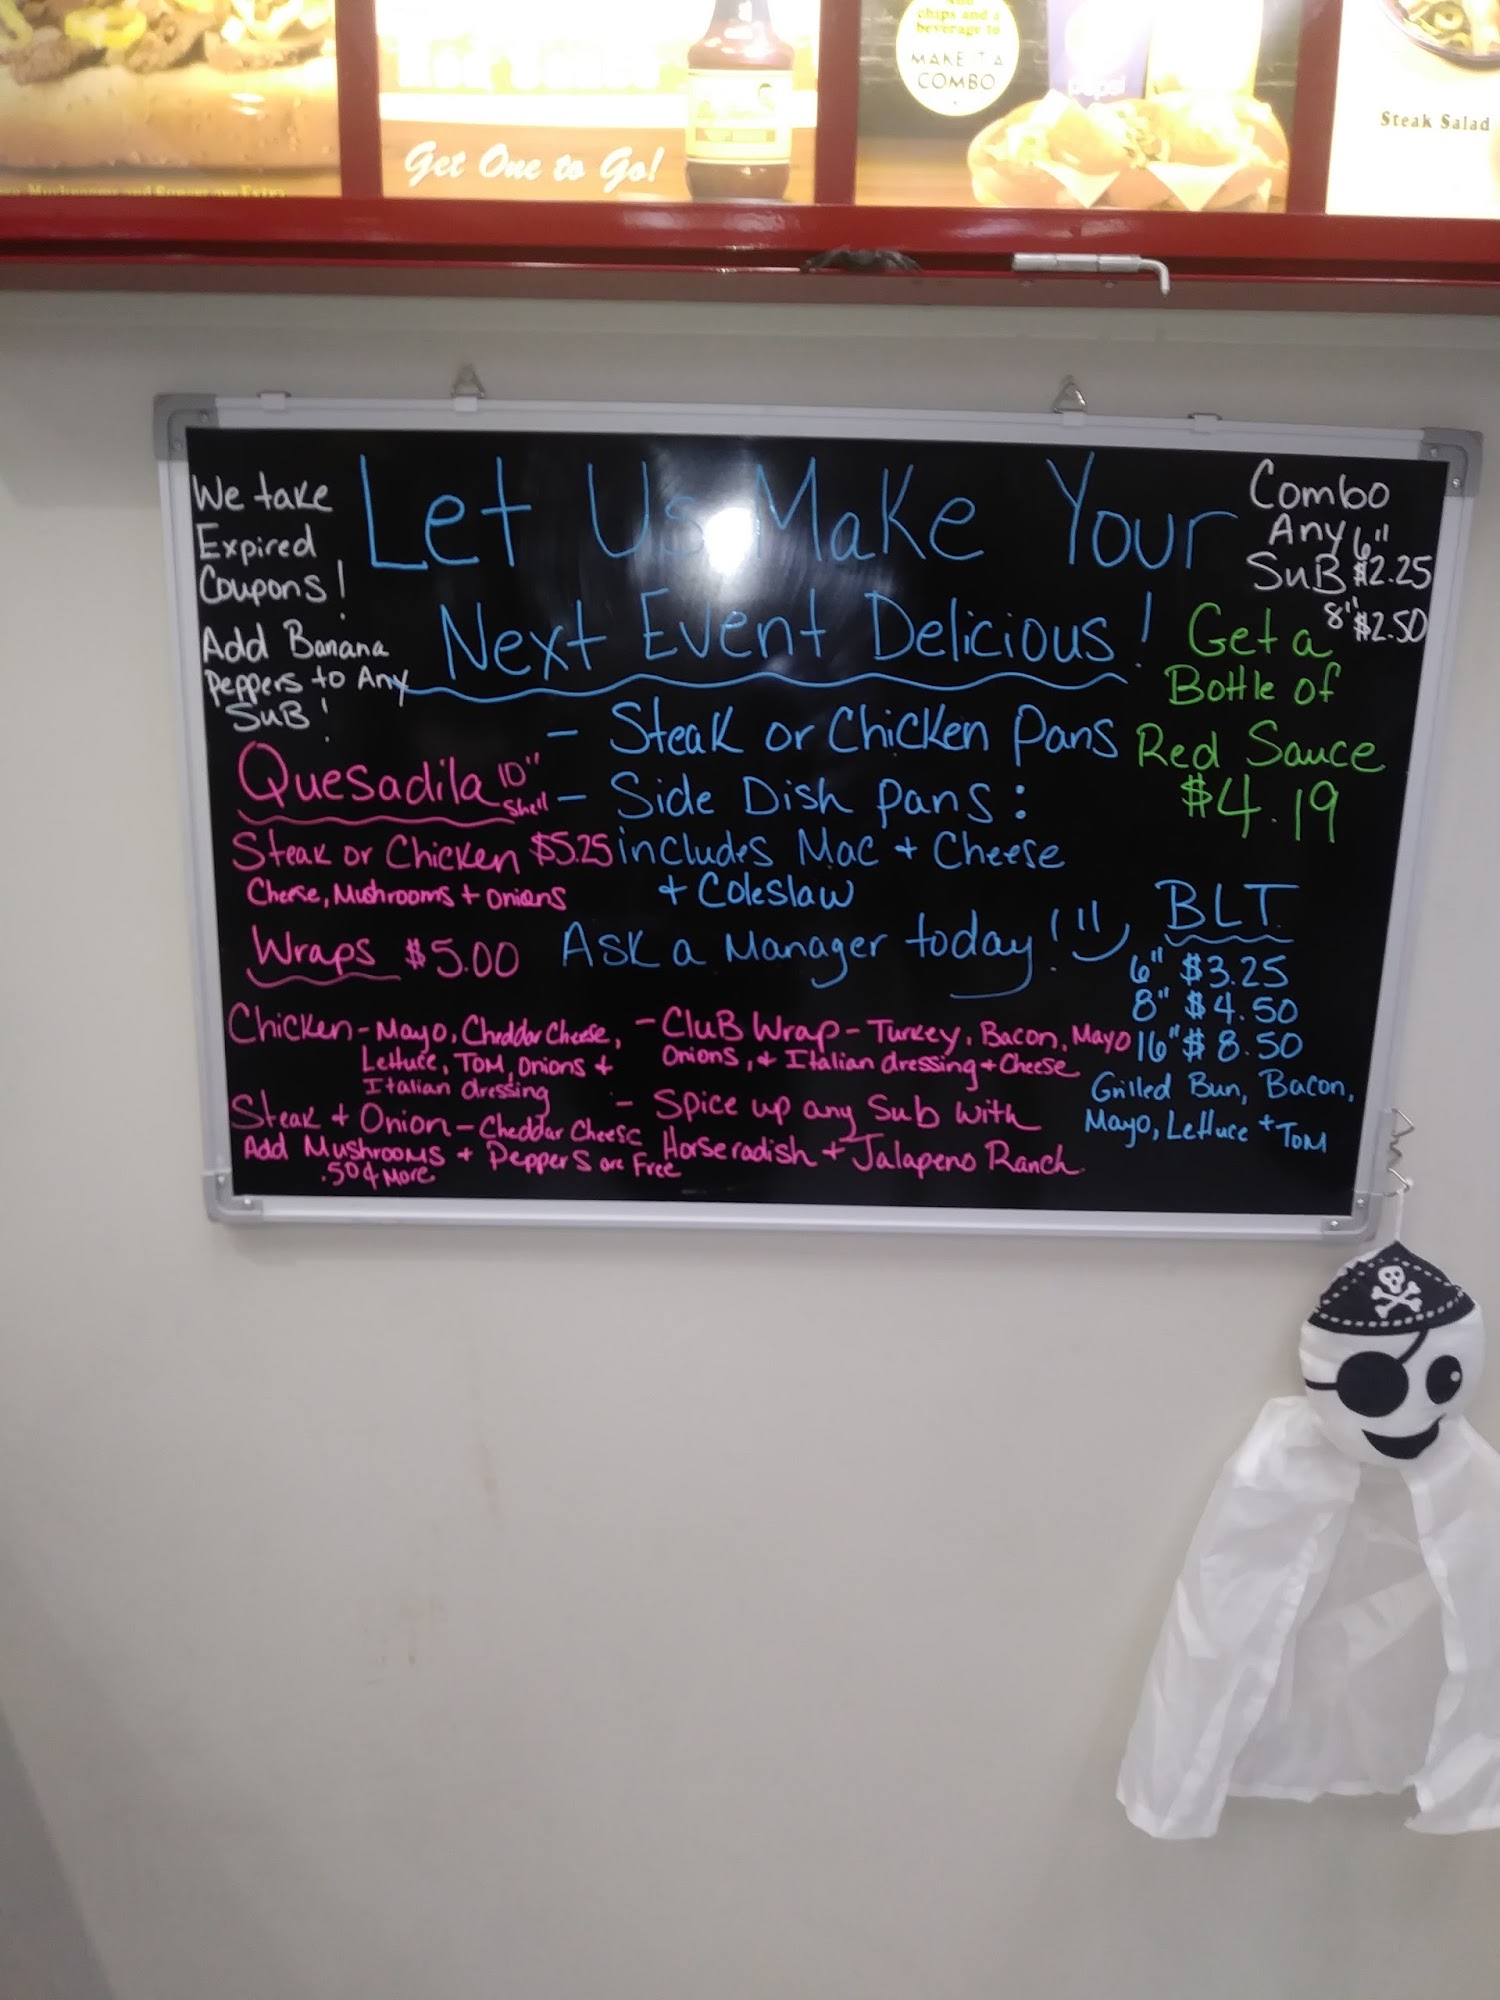 chips and a
beverage to
MAKE IT A
COMBO
pepsi
Get One to Go!
Steak Salad
We take
Expired
Coupons!
Add Banana
Peppers to Any
SuB!
Let Us Make Your
Next Event Delicious!
- Steak or Chicken Pans
- Side Dish Pans:
includes Mac + Cheese
+ Coleslaw
Ask a Manager today!
Combo
Any 6"
SuB $2.25
8" $2.50
Get a
Bottle of
Red Sauce
$4.19
Quesadila 10"
Shell
Steak or Chicken $5.25
Cheese, Mushrooms + Onions
Wraps $5.00
Chicken - Mayo, Cheddar Cheese,
Lettuce, TOM, Onions +
Italian dressing
Steak + Onion - Cheddar Cheese
Add Mushrooms + Peppers are Free
.50¢ More
- CluB Wrap - Turkey, Bacon, Mayo
Onions, + Italian dressing + Cheese
- Spice up any Sub with
Horseradish + Jalapeno Ranch
BLT
6" $3.25
8" $4.50
16" $8.50
Grilled Bun, Bacon,
Mayo, Lettuce + TOM